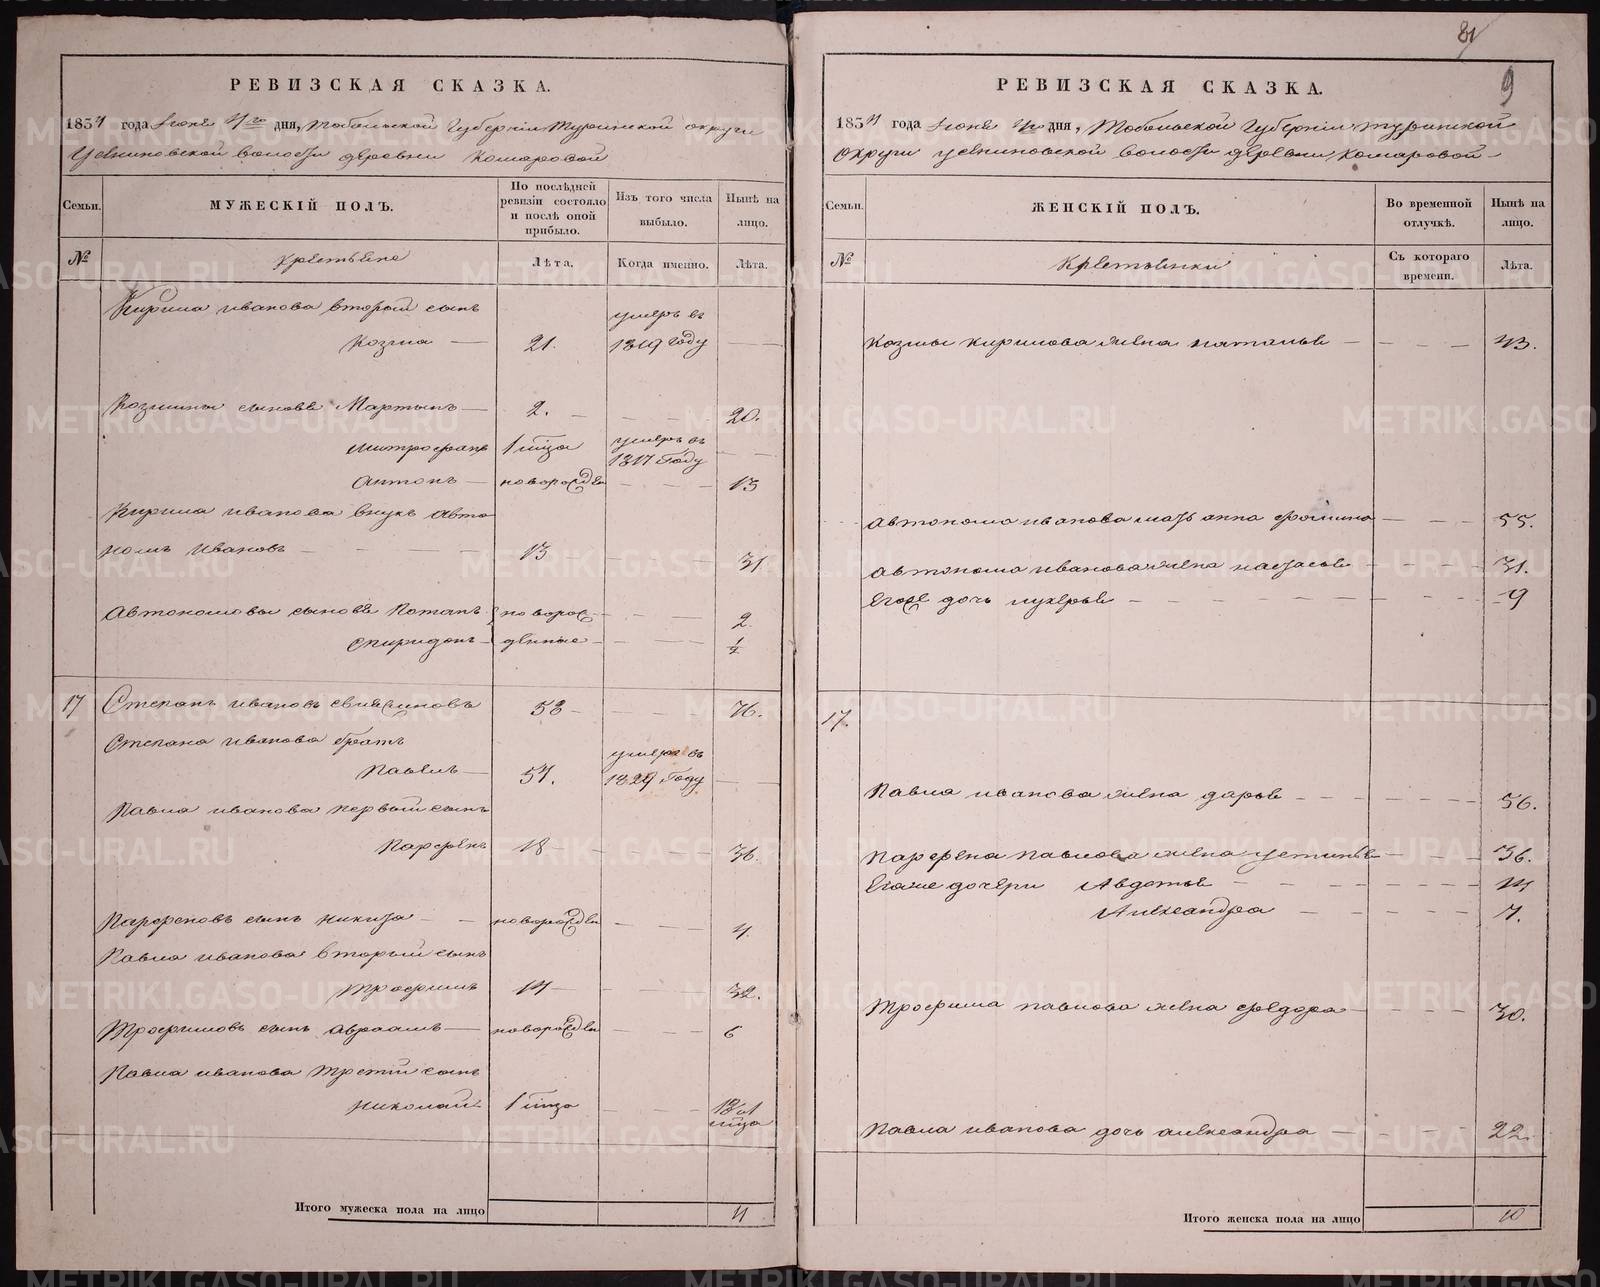 РЕВИЗСКАЯ СКАЗКА.
1834 года Июня 4го дня, Тобольской Губернiи Туринской округи
Усениновской волости деревни Комаровой
Семьи.
МУЖЕСКIЙ ПОЛЪ.
По послѣдней ревизiи состояло и послѣ оной прибыло.
Изъ того числа выбыло.
Нынѣ на лицо.
№
Крестьяне
Лѣта.
Когда именно.
Лѣта.
Кирила иванова второй сынъ
умеръ въ
Козма — 21. 1819 году — —
Козмины сыновья Мартынъ — 2. — — — 20.
митрофанъ 1 м͠ца умеръ въ 1817 году — —
антонъ — новорожден — — — 13
Кирила иванова внукъ авто
номъ ивановъ — — — 13 — — 31
Автономовы сыновья Потапъ новорож — — — 2
спиридонъ — денные — — — ½
17 Степанъ ивановъ 58 — — — 76.
Степана иванова братъ
умеръ въ
Павелъ — 57. 1829 году — —
Павла иванова первый сынъ
Парфенъ 18 — — — 36.
Парфеновъ сынъ никита — — новорожден — — — 4.
Павла иванова второй сынъ
трофимъ 14 — — — 32.
Трофимовъ сынъ авраамъ — новорожден — — — 6
Павла иванова третiй сынъ
николай — 1 м͠ца — — — 18 и 1 м͠ца
Итого мужеска пола на лицо 11
81
9
РЕВИЗСКАЯ СКАЗКА.
1834 года Июня 4го дня, Тобольской Губернiи туринской
округи усениновской волости деревни Комаровой —
Семьи.
ЖЕНСКIЙ ПОЛЪ.
Во временной отлучкѣ.
Нынѣ на лицо.
№
Крестьянки
Съ котораго времени.
Лѣта.
Козмы кирилова жена наталья — — — — 43.
автонома иванова мать анна фомина — — — 55.
автонома иванова жена настасья — — — — 31.
Егоже дочь лукерья — — — — — 9
17.
Павла иванова жена дарья — — — — 56.
Парфена павлова жена устинья — — — 36.
Егоже дочери Авдотья — — — — 14
Александра — — — — 7.
Трофима павлова жена федора — — — — 30.
Павла иванова дочь александра — — — 22.
Итого женска пола на лицо 10
METRIKI.GASO-URAL.RU